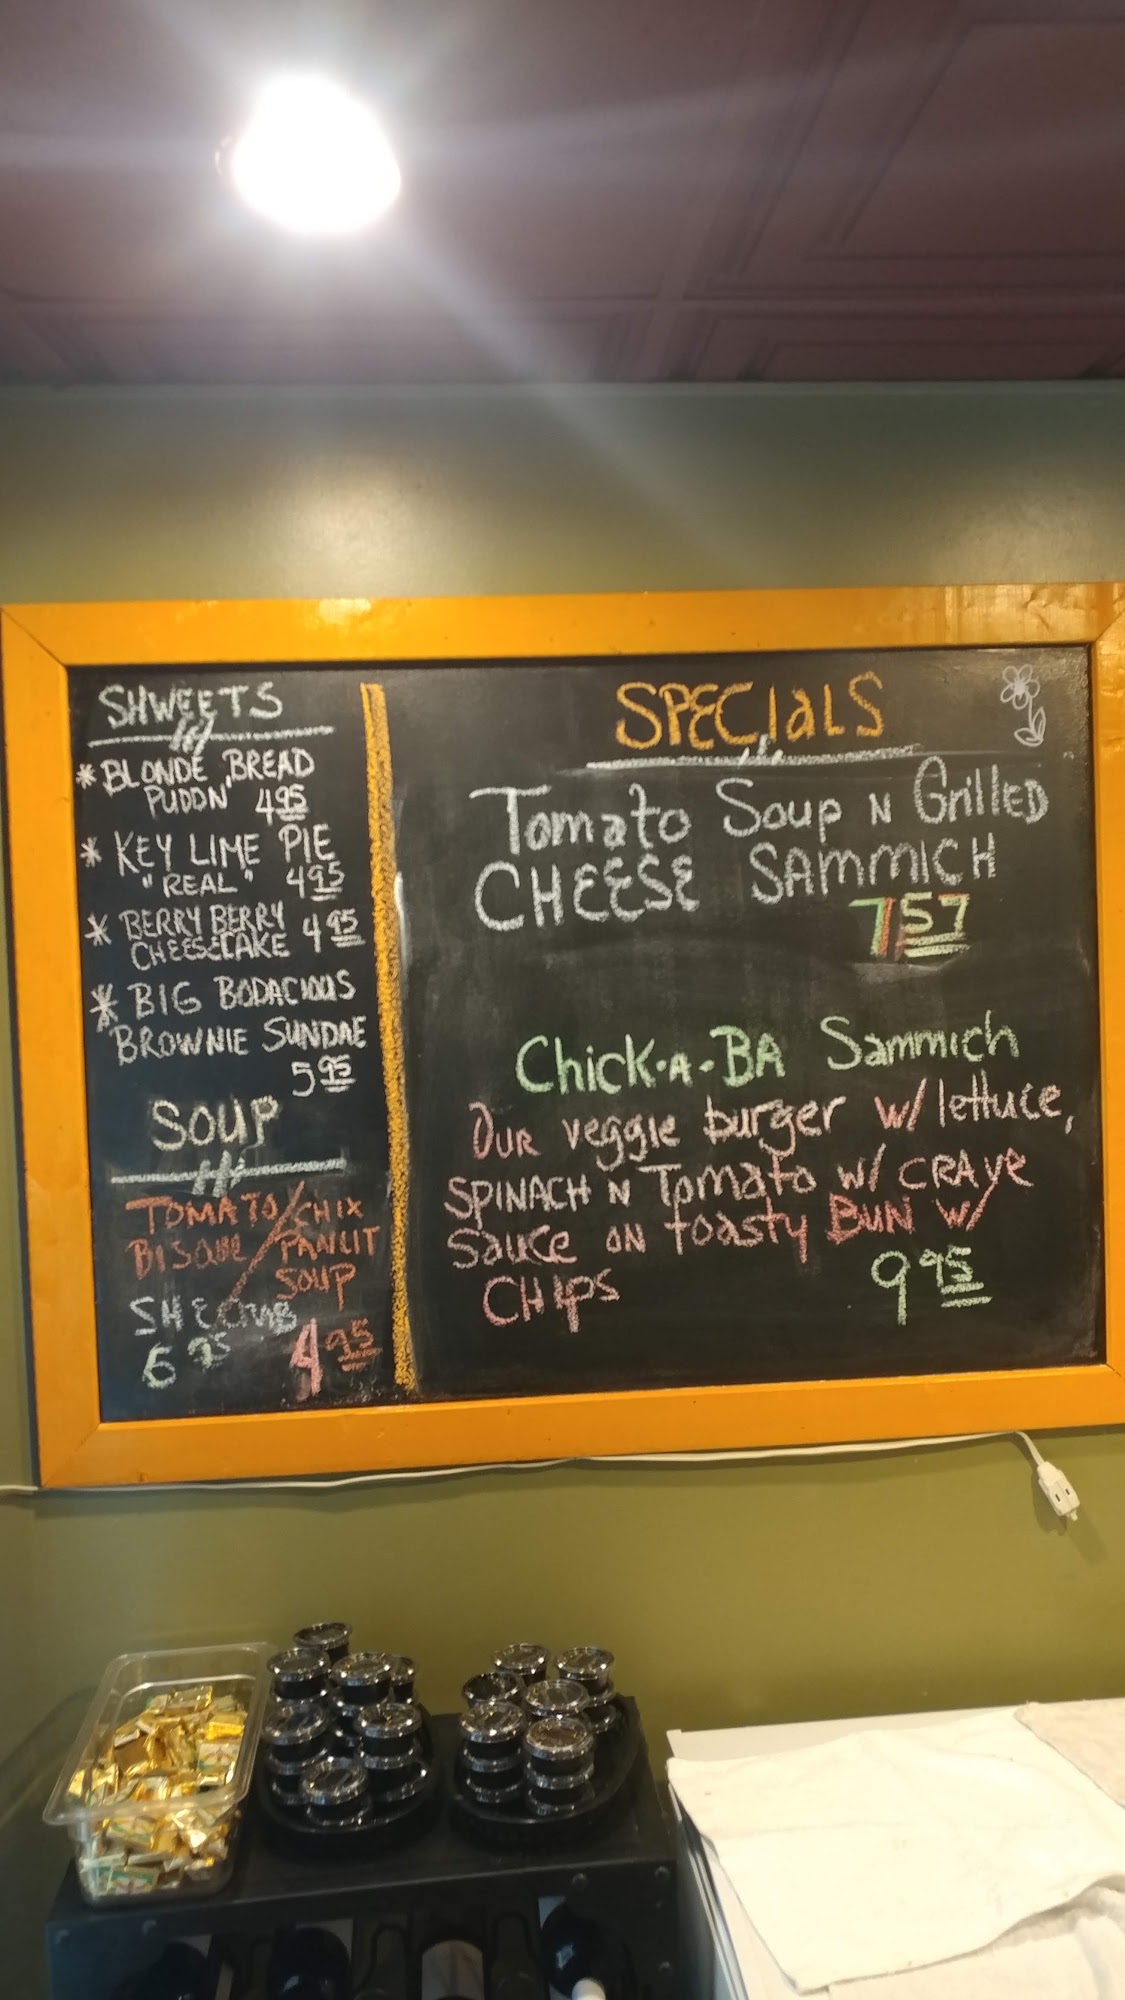 SHWEETS
* BLONDE BREAD
PUDDN' 4.95
* KEY LIME PIE
"REAL" 4.95
* BERRY BERRY
CHEESECAKE 4.95
* BIG BODACIOUS
BROWNIE SUNDAE
5.95
SOUP
TOMATO/CHIX
BISQUE/PANLIT
SOUP
SHE CRAB
4.95
SPECIALS
Tomato Soup N GrillED
CHEESE SAMMICH
7.57
Chick-A-BA Sammich
OUR veggie burger w/ lettuce,
SPINACH N Tomato w/ CRAVE
Sauce ON toasty BUN w/
CHIPS 9.95